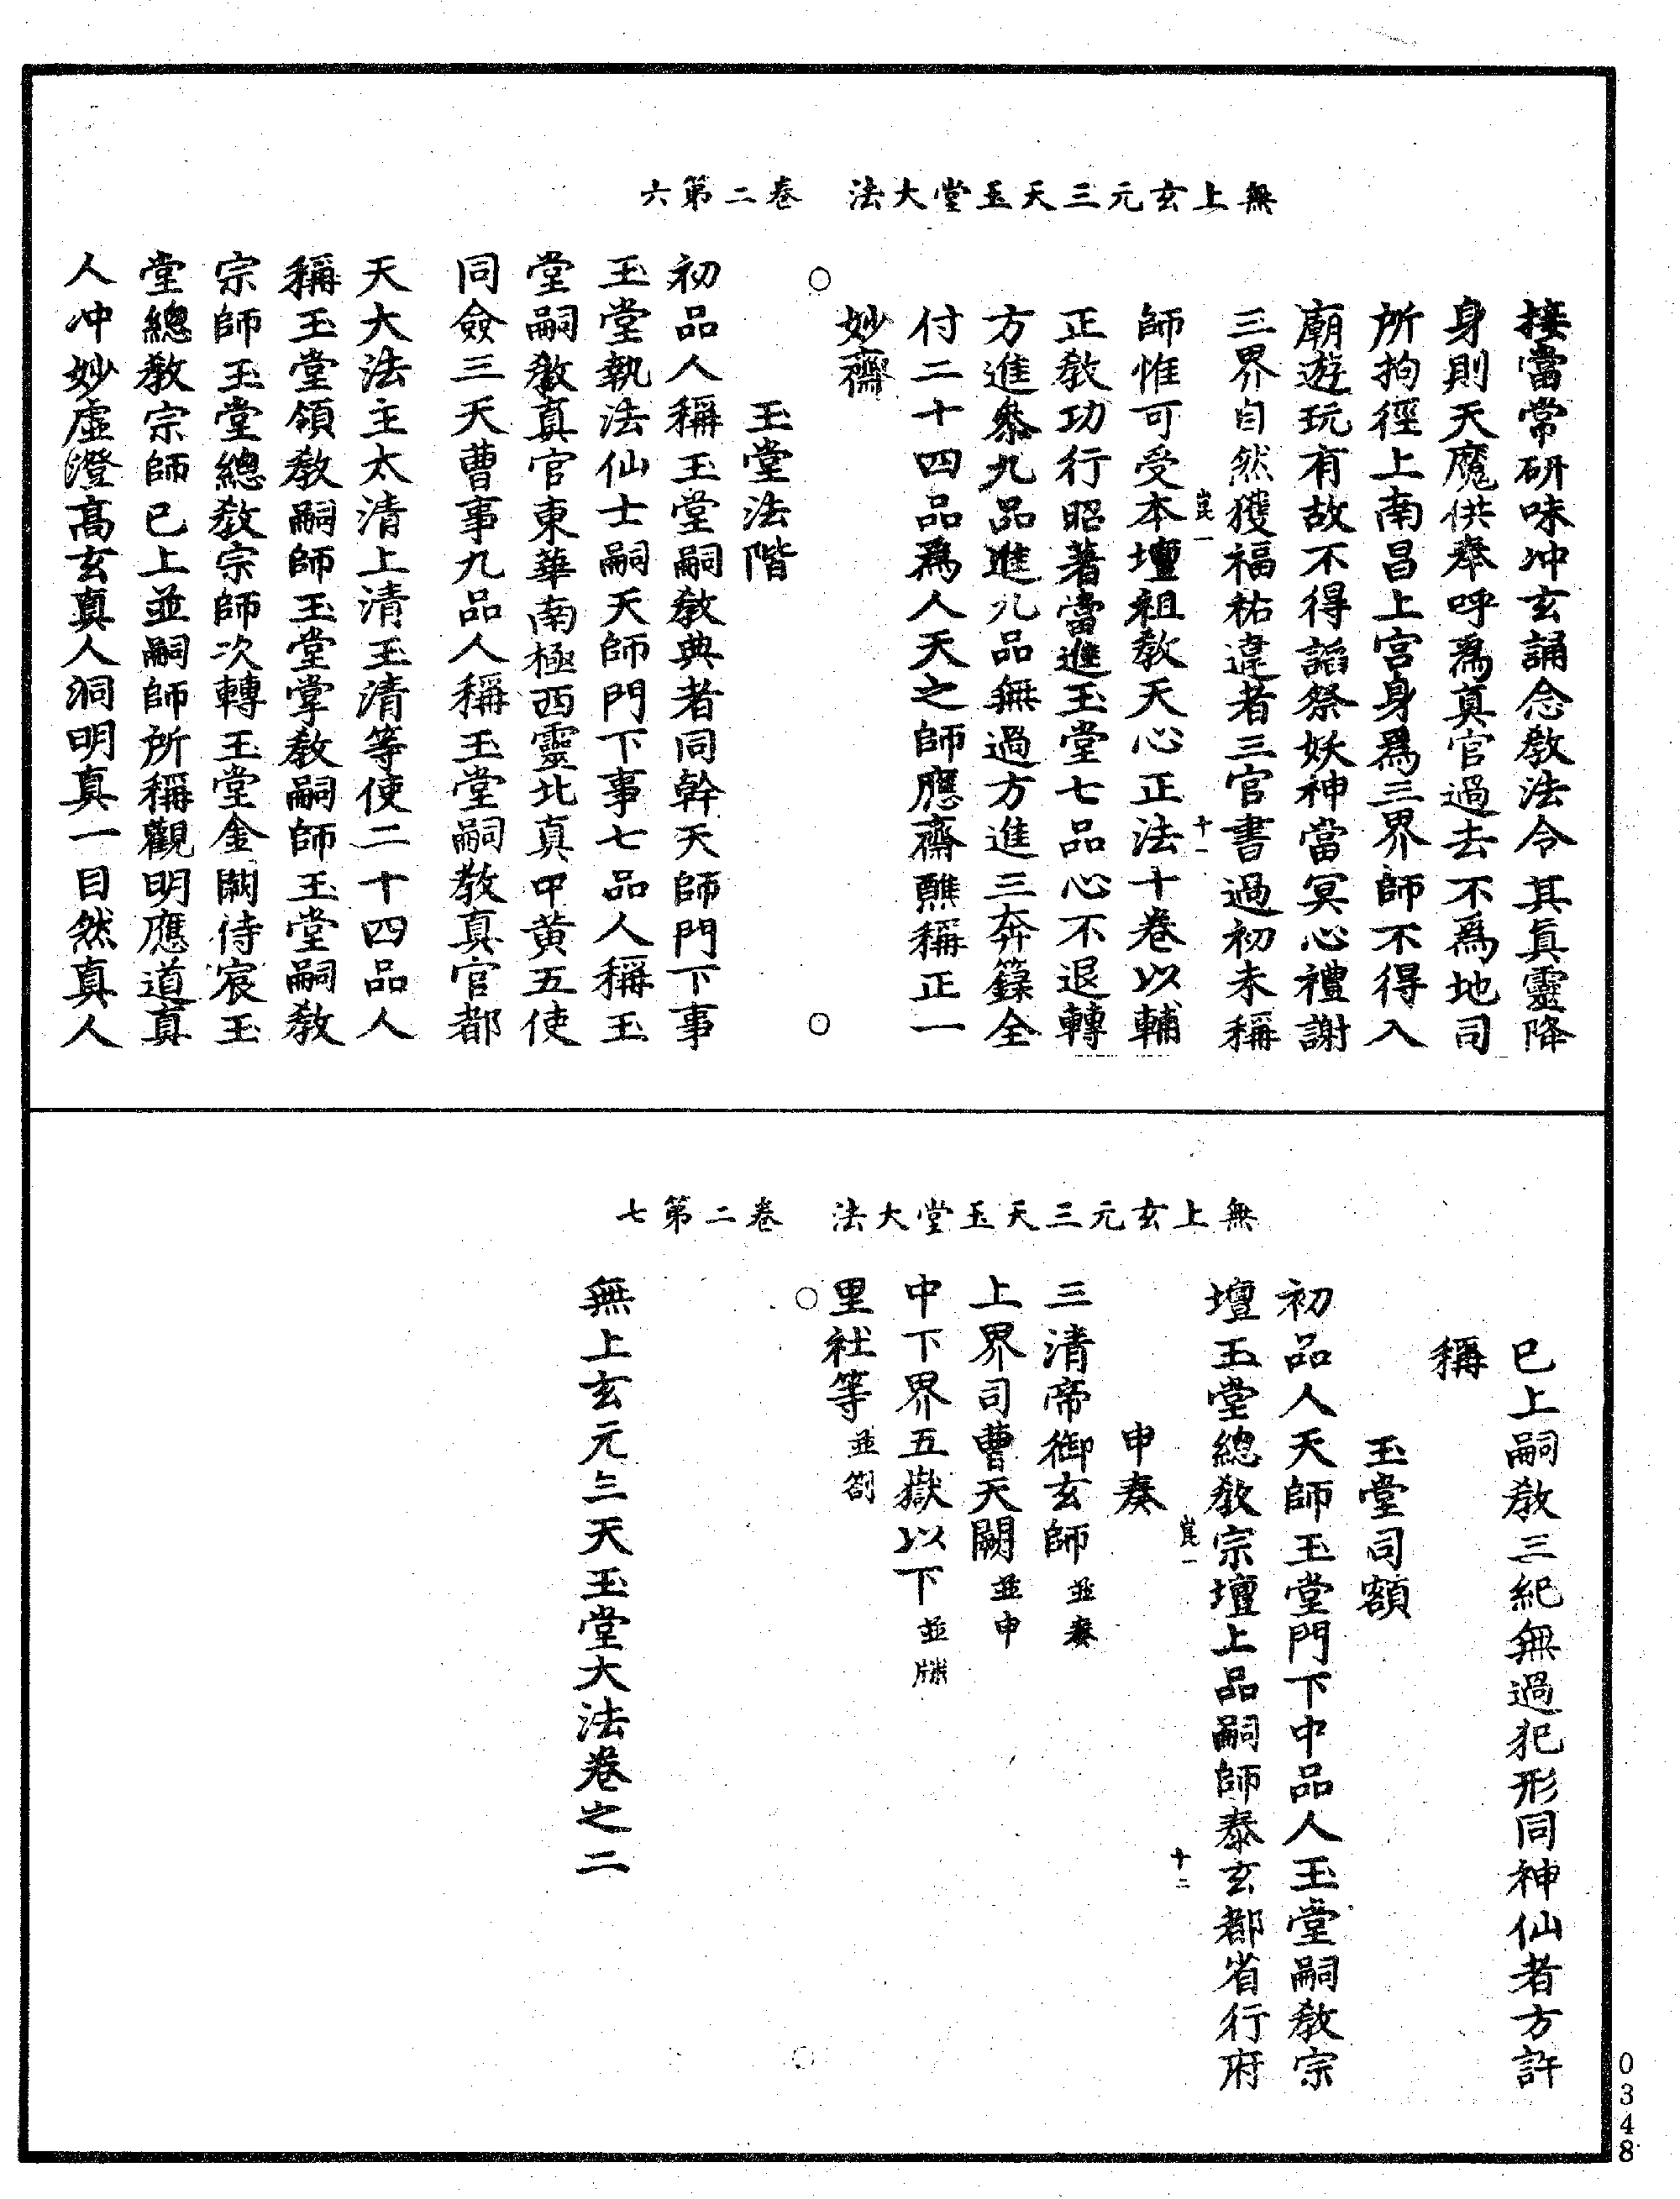 無上玄元三天玉堂大法　卷二第六
接當常研味冲玄誦念教法令其真靈降
身則天魔供奉呼爲真官過去不爲地司
所拘徑上南昌上宮身爲三界師不得入
廟遊玩有故不得謟祭妖神當冥心禮謝
三界自然獲福祐違者三官書過初未稱
崑一　十一
師惟可受本壇祖教天心正法十卷以輔
正教功行昭著當進玉堂七品心不退轉
方進叅九品進九品無過方進三奔籙全
付二十四品爲人天之師應齋醮稱正一
妙齋
玉堂法階
初品人稱玉堂嗣教典者同幹天師門下事
玉堂執法仙士嗣天師門下事七品人稱玉
堂嗣教真官東華南極西靈北真中黄五使
同僉三天曹事九品人稱玉堂嗣教真官都
天大法主太清上清玉清等使二十四品人
稱玉堂領教嗣師玉堂掌教嗣師玉堂嗣教
宗師玉堂總教宗師次轉玉堂金闕侍宸玉
堂總教宗師已上並嗣師所稱觀明應道真
人冲妙虛澄髙玄真人洞明真一自然真人
無上玄元三天玉堂大法　卷二第七
已上嗣教三紀無過犯形同神仙者方許
稱
玉堂司額
初品人天師玉堂門下中品人玉堂嗣教宗
壇玉堂總教宗壇上品嗣師泰玄都省行府
崑一　十二
申奏
三清帝御玄師並奏
上界司曹天闕並申
中下界五嶽以下並牒
里社等並劄
無上玄元三天玉堂大法卷之二
0348